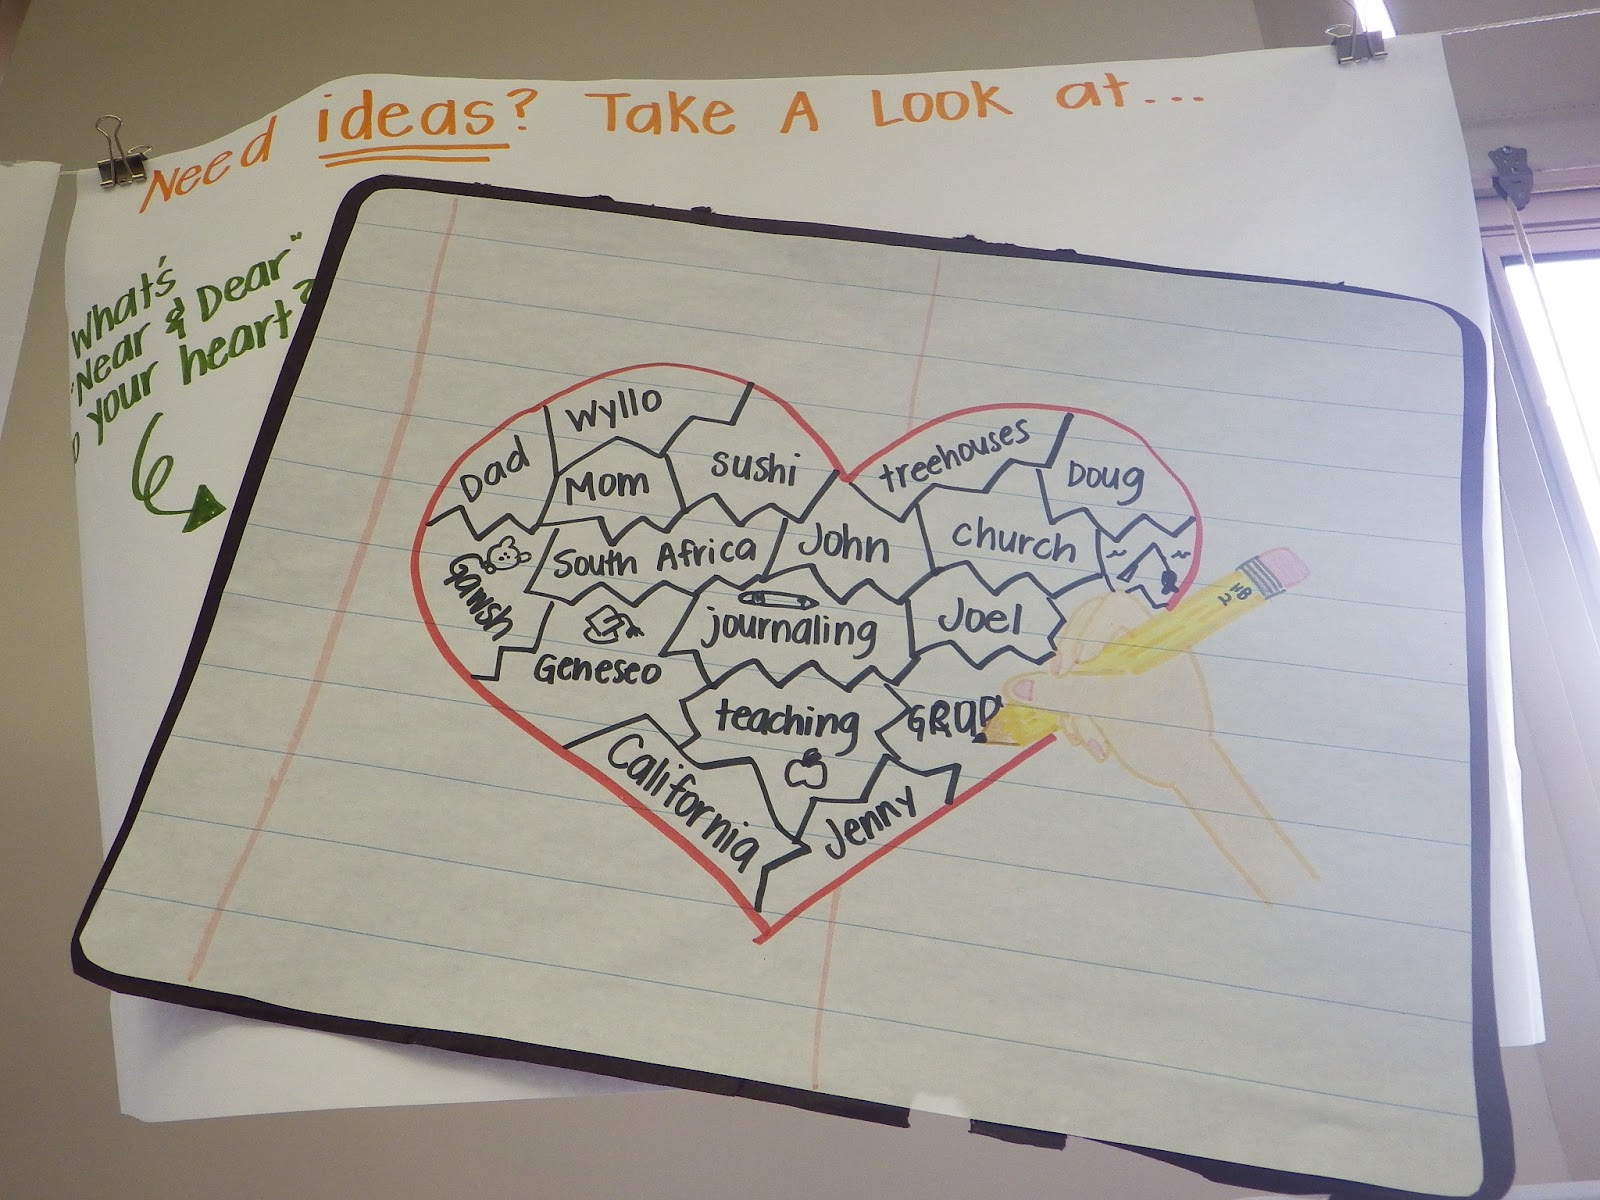 Need ideas? Take A Look at...
What's
"Near & Dear"
to your heart?
Wyllo
Dad
Mom
sushi
treehouses
Doug
South Africa
John
church
journaling
Joel
Geneseo
teaching
California
Jenny
HB
2